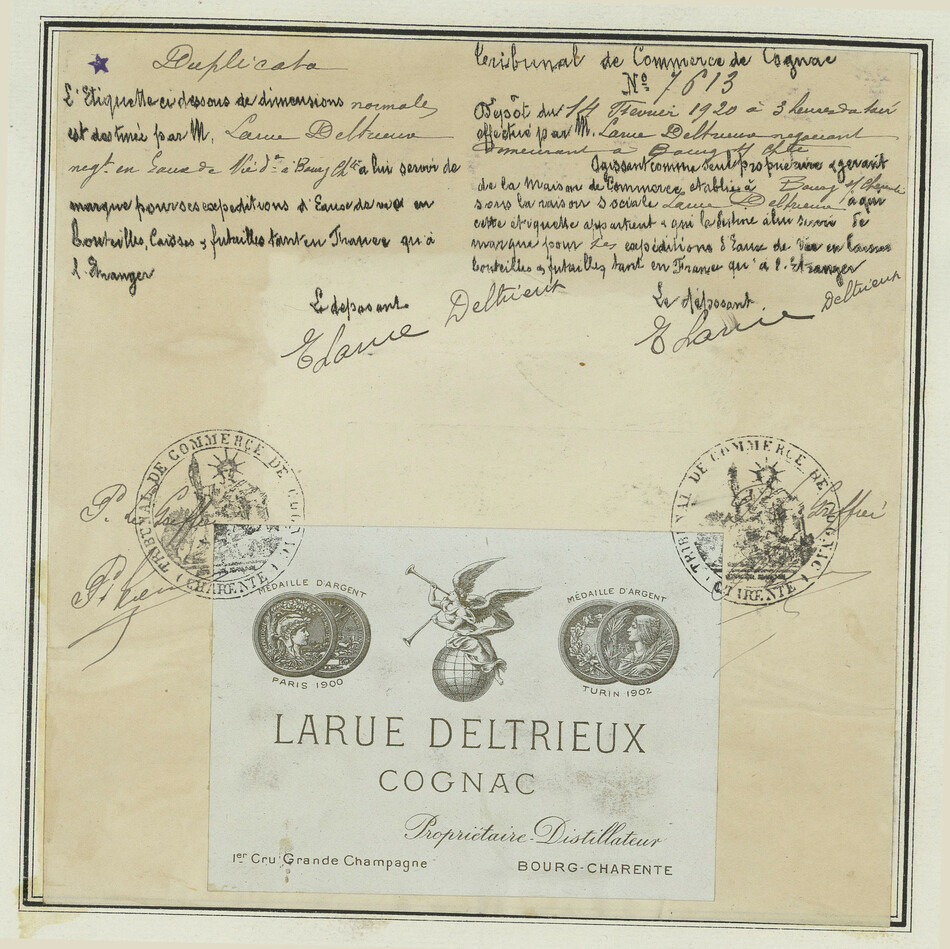 Duplicata
L'Etiquette ci dessous de dimensions normales
est destinée par M. Larue Deltrieux
negt. en Eaux de Vie dt. à Bourg Chte à lui servir de
marque pour ses expeditions d'Eaux de vie en
Bouteilles, Caisses & futailles tant en France qu'à
l'Etranger
Le deposant
E Larue Deltrieux
Tribunal de Commerce de Cognac
No 7613
Dépôt du 14 Fevrier 1920 à 3 heures du soir
effectué par M. Larue Deltrieux negociant
demeurant à Bourg s/ Chte
agissant comme seul propriétaire & gerant
de la Maison de Commerce etablie à Bourg s/ Charente
sous la raison sociale Larue Deltrieux à qui
cette étiquette appartient & qui la destine à lui servir de
marque pour les expéditions d'Eaux de Vie en Caisses
bouteilles & futailles, tant en France qu'à l'Etranger
Le déposant
E Larue Deltrieux
TRIBUNAL DE COMMERCE DE COGNAC
(CHARENTE)
TRIBUNAL DE COMMERCE DE COGNAC
(CHARENTE)
MÉDAILLE D'ARGENT
PARIS 1900
MÉDAILLE D'ARGENT
TURIN 1902
LARUE DELTRIEUX
COGNAC
Propriétaire-Distillateur
1er Cru Grande Champagne
BOURG-CHARENTE